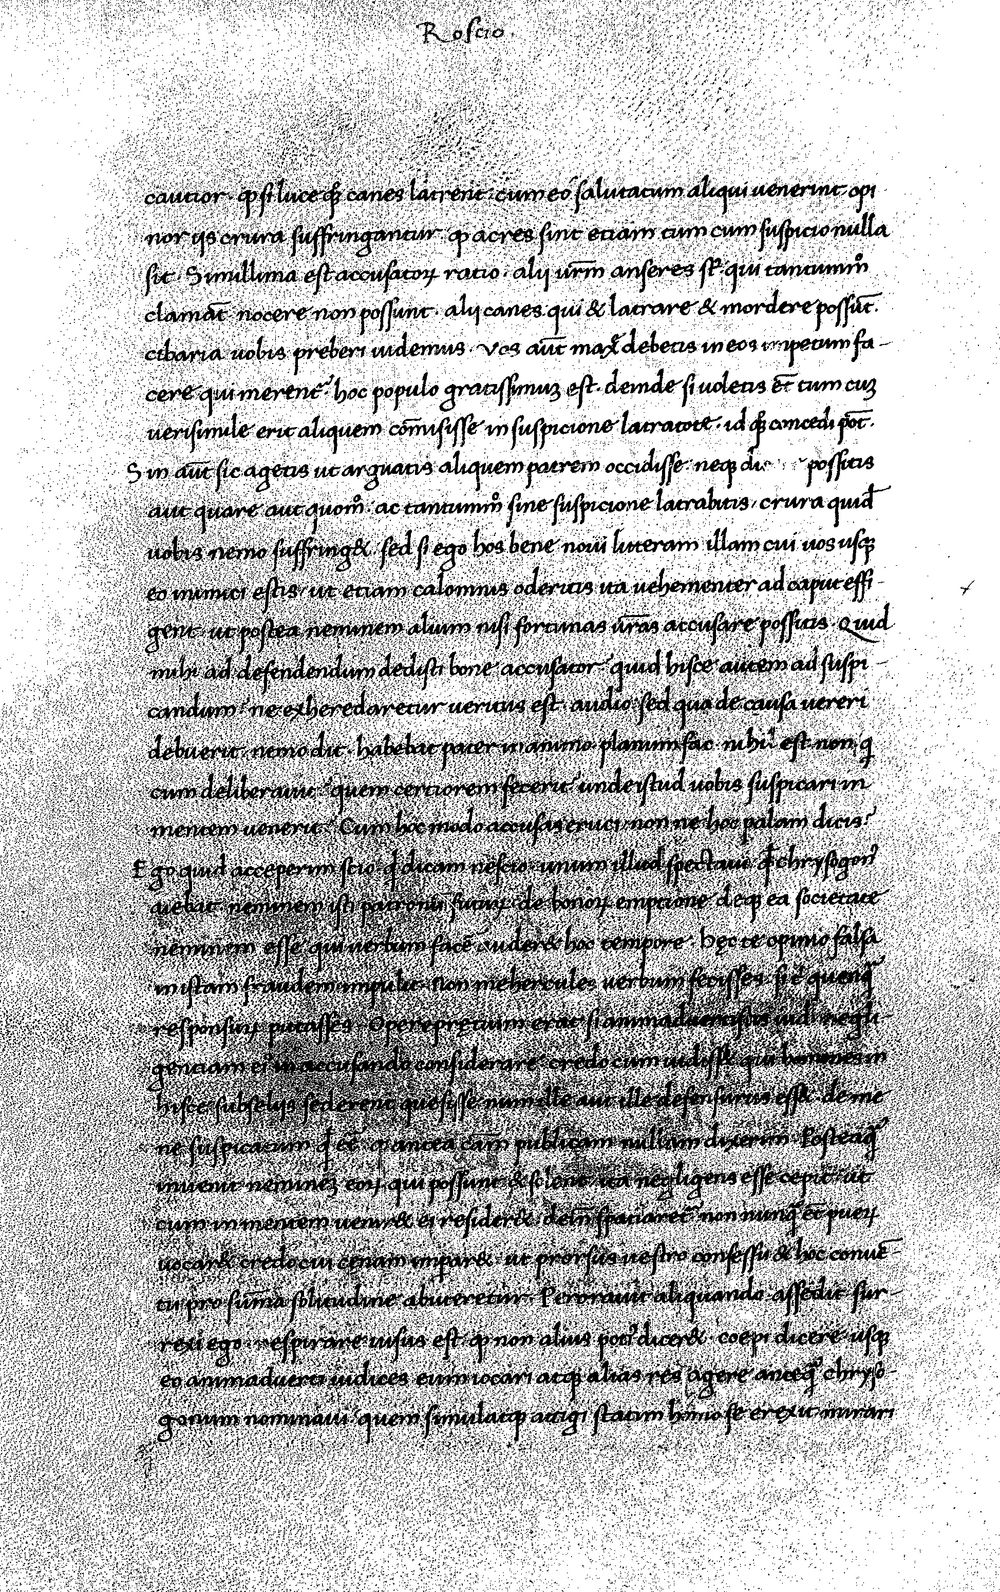 Roscio.
cautior. ꝙ si luce qͦꝫ canes latrent. cum eo salutatum aliqui uenerint. opi
nor iis crura suffringantur. ꝙ acres sint etiam tum cum suspicio nulla
sit. Simillima est accusatoꝝ ratio. alij urm̄ anseres st̄. qui tantummͦ
clamāt. nocere non possunt. alij canes qui & latrare & mordere possūt.
cibaria uobis preberi uidemus. Vos aūt maxͤ debetis in eos impetum fa-
cere qui merent̄. hoc populo gratissimuꝫ est. deinde si uoletis ēt tum cuꝫ
uerisimile erit aliquem cōmisisse in suspicione latratote. id qͦꝫ concedi pōt.
Sin aūt sic agetis ut arguatis aliquem patrem occidisse. neqꝫ possitis
aut quare aut quomͦ. ac tantummͦ sine suspicione latrabitis. crura quid̄
uobis nemo suffring&. sed si ego hos bene noui literam illam cui uos usqꝫ
eo inimici estis. ut etiam calomnis oderitis ita uehementer ad caput effi-
gent. ut postea neminem alium nisi fortunas ūras accusare possitis. Quid
mihi ad defendendum dedisti bone accusator. quid hisce autem ad suspi-
candum? ne exheredaretur ueritus est. audio. sed qua de causa uereri
debuerit. nemo dic̄. habebat pater in animo. planum fac. nihil est. non q̄
cum deliberauit. quem certiorem fecerit. unde istud uobis suspicari in
mentem uenerit. Cum hoc modo accusas eruci. non ne hoc palam dicis?
Ego quid acceperim scio. qd̄ dicam nescio. unum illud spectaui qd̄ chrysogon᷒
aiebat. neminem isti patronū futuꝝ. de bonoꝝ emptione deqꝫ ea societate
neminem esse qui uerbum facē auder& hoc tempore. hęc te opinio falsa
in istam fraudem impulit. Non mehercules uerbum fecisses. si t̄ quenq̄
responsuꝝ putasses. Opere pretium erat si animaduertistis iud. negli-
gentiam ei᷒ in accusando considerare. credo cum uidiss& qui homines in
hisce subselijs sederent. quesisse num ille aut ille defensurus ess&. de me
ne suspicatum qd̄ eē. ꝙ antea cām publicam nullam dixerim. Posteaq̄
inuenit nemineꝫ eoꝝ qui possunt & solent. ita negligens esse cepit. ut
cum in mentem uenir& ei resider&. dein̄ spatiaret̄. non nunq̄ ēt pueꝝ
uocar& credo cui cenam imꝑar&. ut prorsus uestro consessu & hoc conuē-
tu pro sūma solitudine abuteretur. Perorauit aliquando. assedit. sur-
rexi ego. respirare uisus est. ꝙ non alius poti᷒ dicer&. coepi dicere. usqꝫ
eo animaduerti iudices eum iocari atqꝫ alias res agere anteq̄ chryso-
gonum nominaui. quem simulatqꝫ attigi. statim homo se erexit. mirari